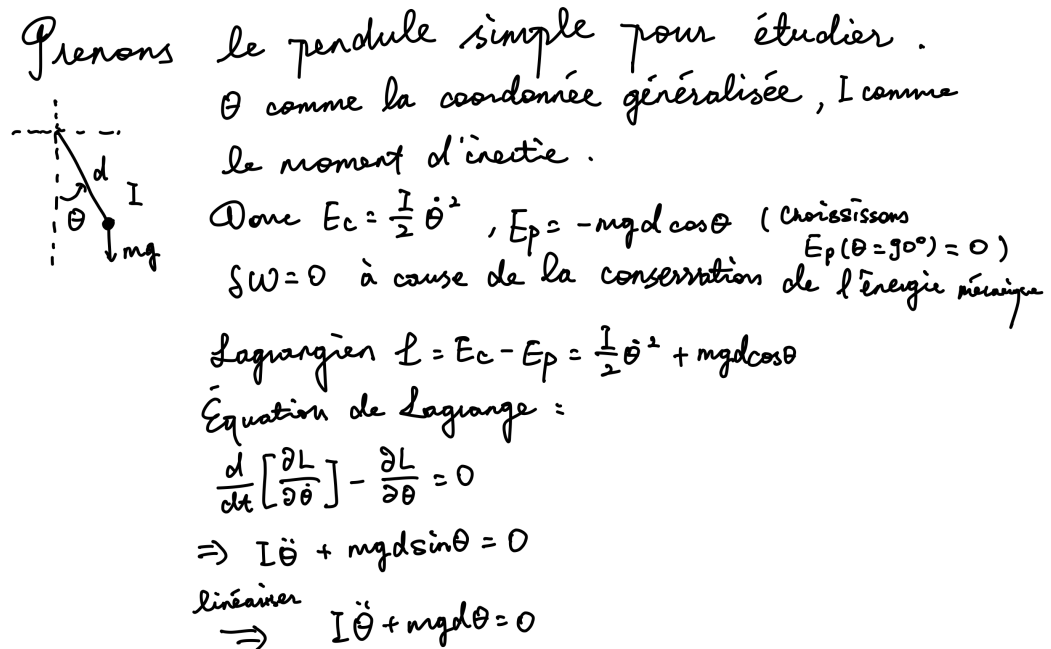 Prenons le pendule simple pour étudier.
θ comme la coordonnée généralisée, I comme
le moment d'inertie.
d
I
θ
mg
Donc Ec = I/2 θ̇², Ep = -mgd cosθ (Choississons
Ep(θ=90°)=0)
δW=0 à cause de la conservation de l'énergie mécanique
Lagrangien L = Ec - Ep = I/2 θ̇² + mgdcosθ
Équation de Lagrange :
d/dt [∂L/∂θ̇] - ∂L/∂θ = 0
⇒ Iθ̈ + mgdsinθ = 0
linéariser
⇒ Iθ̈ + mgdθ = 0